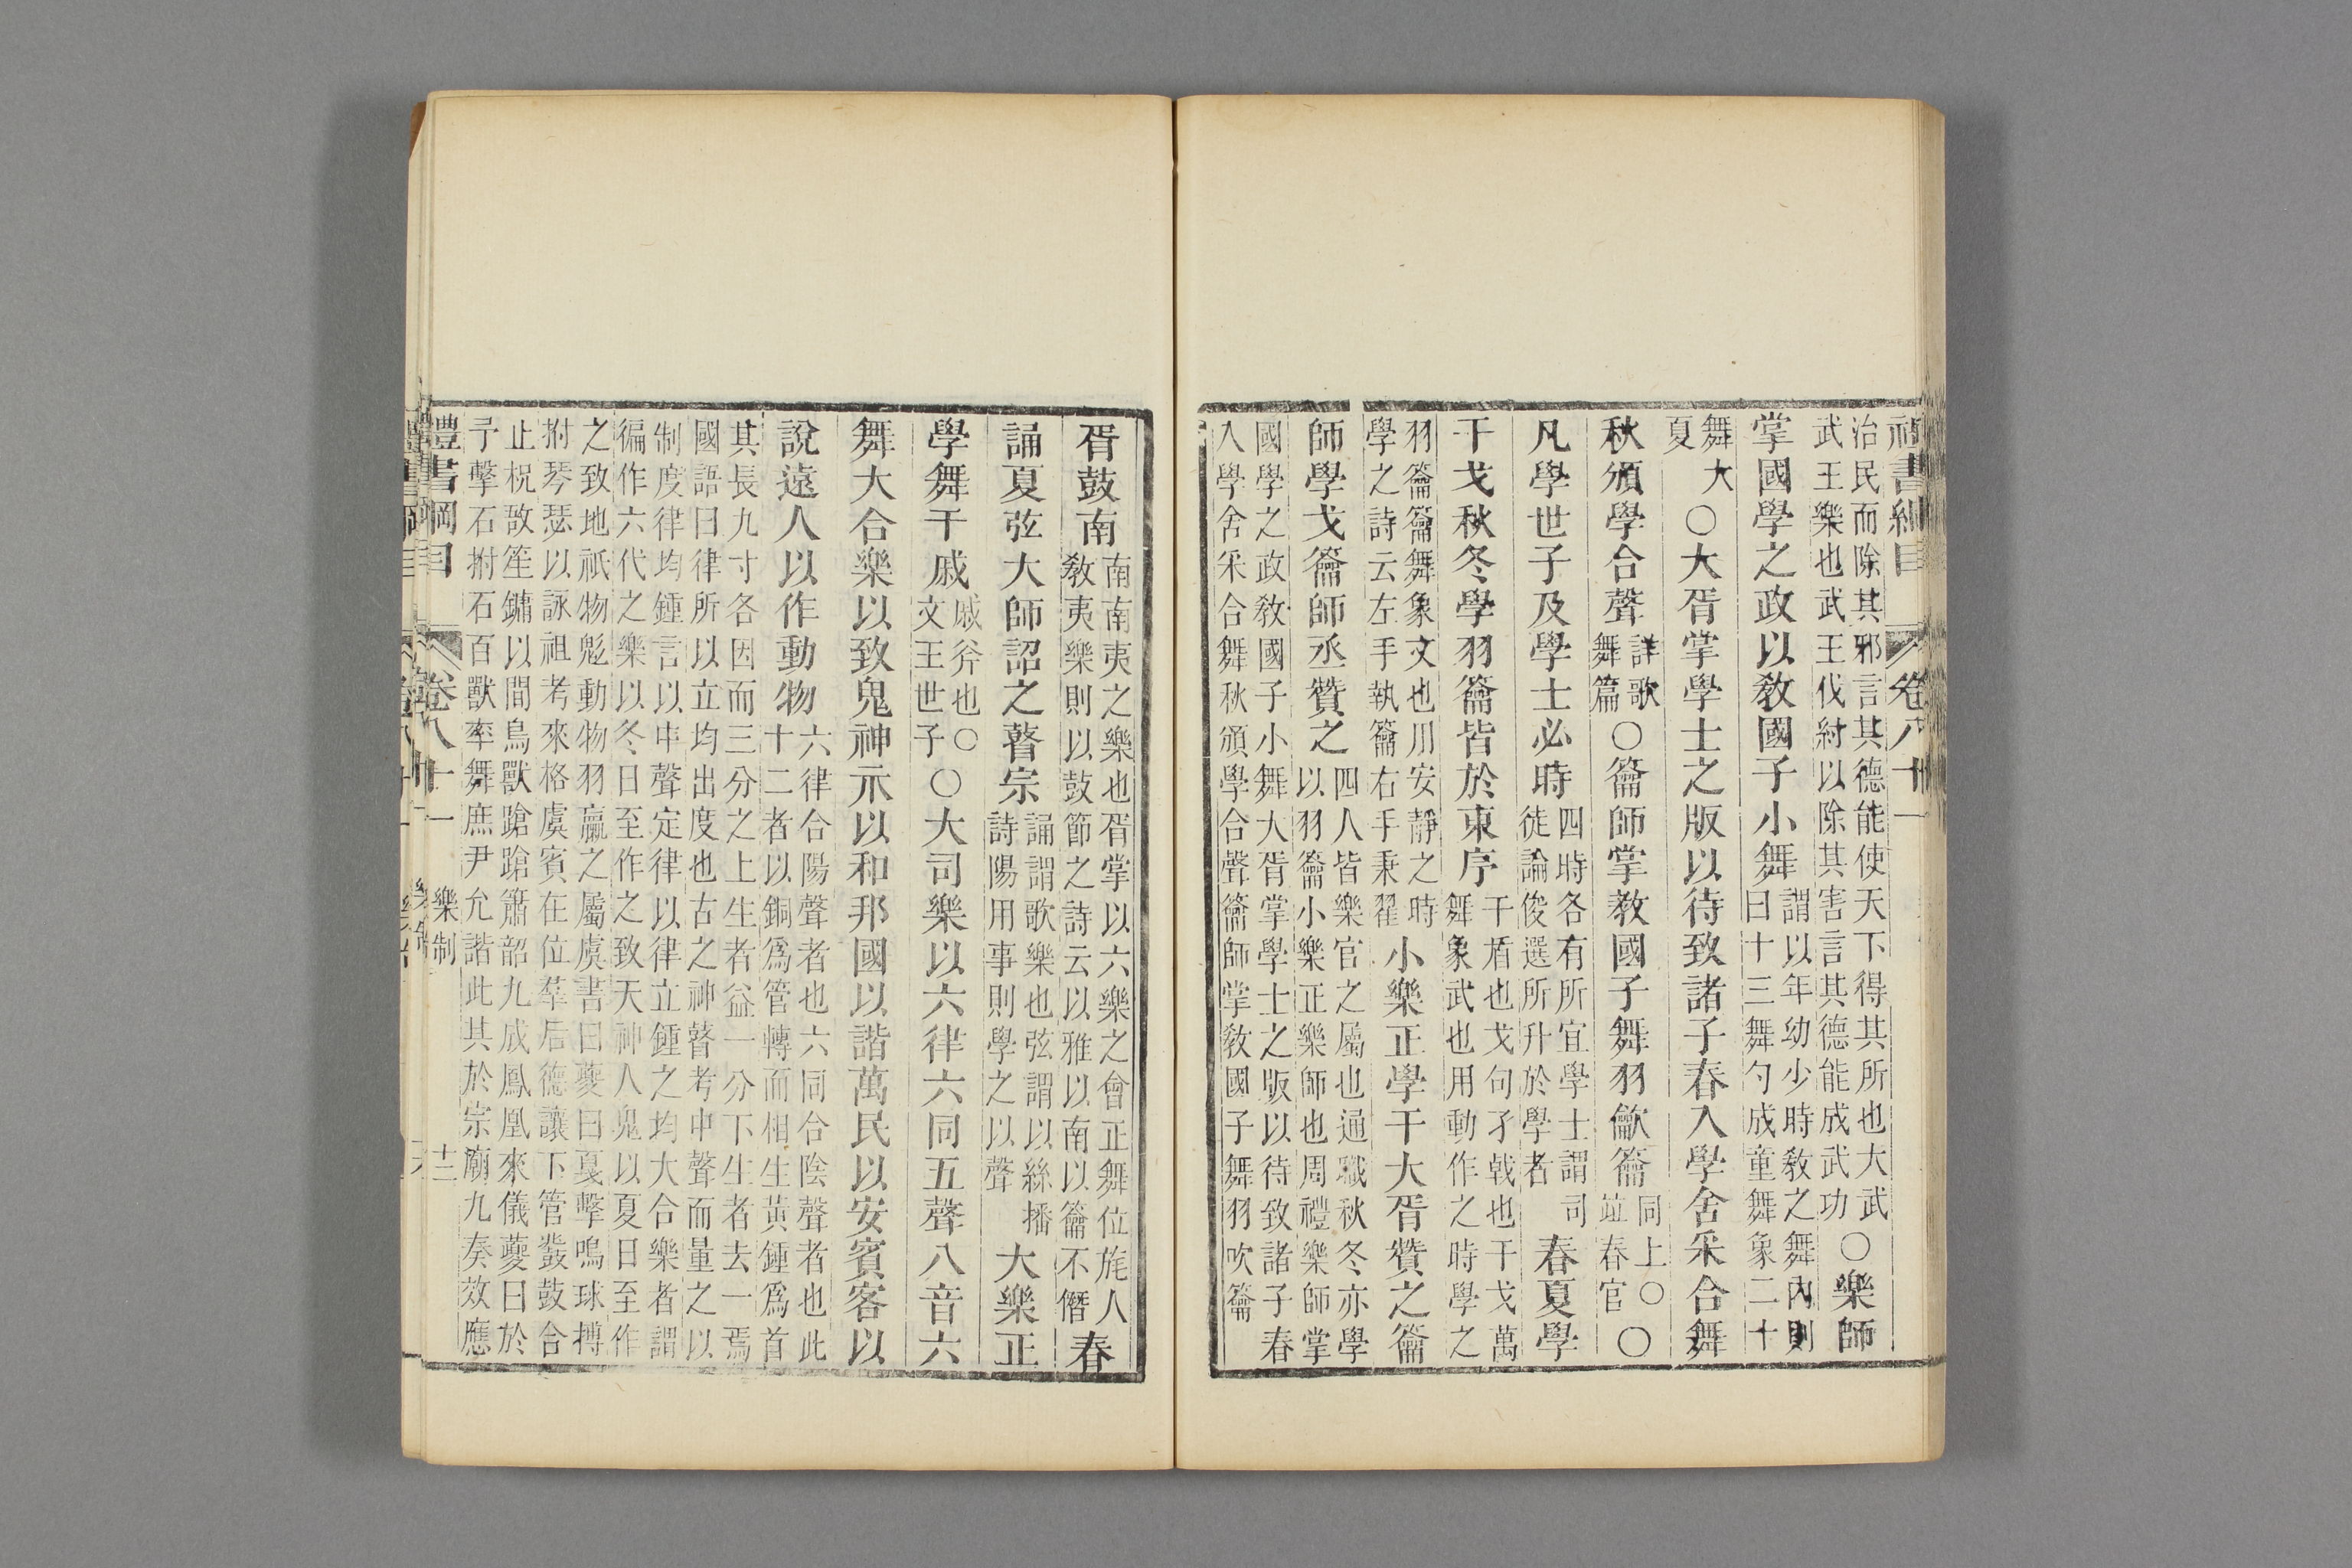 禮書綱目 卷八十一
治民而除其邪言其德能使天下得其所也大武
武王樂也武王伐紂以除其害言其德能成武功
○樂師
掌國學之政以敎國子小舞
謂以年幼少時敎之舞內則
曰十三舞勺成童舞象二十
舞大
夏
○大胥掌學士之版以待致諸子春入學舍采合舞
秋頒學合聲
詳歌
舞篇
○籥師掌敎國子舞羽龡籥
同上○
竝春官
○
凡學世子及學士必時
四時各有所宜學士謂司
徒論俊選所升於學者
春夏學
干戈秋冬學羽籥皆於東序
干盾也戈句孑戟也干戈萬
舞象武也用動作之時學之
羽籥籥舞象文也用安靜之時
學之詩云左手執籥右手秉翟
小樂正學干大胥贊之籥
師學戈籥師丞贊之
四人皆樂官之屬也通職秋冬亦學
以羽籥小樂正樂師也周禮樂師掌
國學之政敎國子小舞大胥掌學士之版以待致諸子春
入學舍采合舞秋頒學合聲籥師掌敎國子舞羽吹籥
胥鼓南
南南夷之樂也胥掌以六樂之會正舞位旄人
敎夷樂則以鼓節之詩云以雅以南以籥不僭
春
誦夏弦大師詔之瞽宗
誦謂歌樂也弦謂以絲播
詩陽用事則學之以聲
大樂正
學舞干戚
戚斧也○
文王世子
○大司樂以六律六同五聲八音六
舞大合樂以致鬼神示以和邦國以諧萬民以安賓客以
說遠人以作動物
六律合陽聲者也六同合陰聲者也此
十二者以銅爲管轉而相生黃鍾爲首
其長九寸各因而三分之上生者益一分下生者去一焉
國語曰律所以立均出度也古之神瞽考中聲而量之以
制度律均鍾言以中聲定律以律立鍾之均大合樂者謂
徧作六代之樂以冬日至作之致天神人鬼以夏日至作
之致地祇物鬽動物羽臝之屬虞書曰夔曰戛擊鳴球搏
拊琴瑟以詠祖考來格虞賓在位羣后德讓下管鼗鼓合
止柷敔笙鏞以間鳥獸蹌蹌簫韶九成鳳凰來儀夔曰於
予擊石拊石百獸率舞庶尹允諧此其於宗廟九奏效應
禮書綱目 卷八十一 樂制 十三